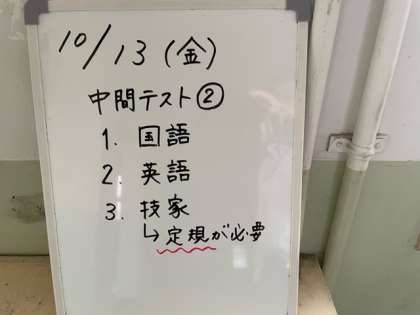 10/13(金)
中間テスト②
1. 国語
2. 英語
3. 技家
↳定規が必要